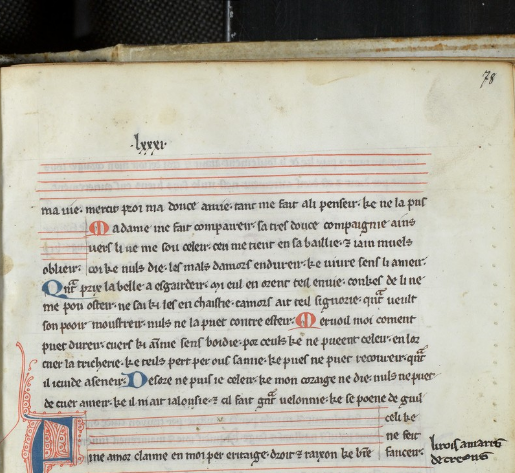 78
lxxxi
ma uie. merci proi ma douce amie. tant me fait a li penseir. ke ne la puis
Ma dame me fait compaireir. sa tres douce compaignie. ains
uers li ne me sou celeir. cen me tient en sa baillie. ⁊ iain muels
oblieir. coi ke nuls die. les mals damors endureir. ke uiure sens li ameir.
Quāt pris la belle a esgairdeir. mi eul en orent teil enuie. conkes de li ne
me pou osteir. ne sai ki les en chaistie. camors ait teil signorie. quāt ueult
son pooir moustreir. nuls ne la puet contre esteir. Meruoil moi coment
puet dureir. cuers ki aīme sens boidie. por ceuls ke ne pueent celeir. en lor
cuer la tricherie. ke teils pert per ous sanne. ke pues ne puet recoureir. quāt
il cuide aseneir. Desore ne puis ie celeir. ke mon coraige ne die. nuls ne puet
de cuer ameir. ke il nait ialousie. ⁊ cil fait grāt uelonnie. ke se poene de guil
celi ke
ne seit
fauceir.
me amor claime en moi per eritaige. droit ⁊ raixon ke biē